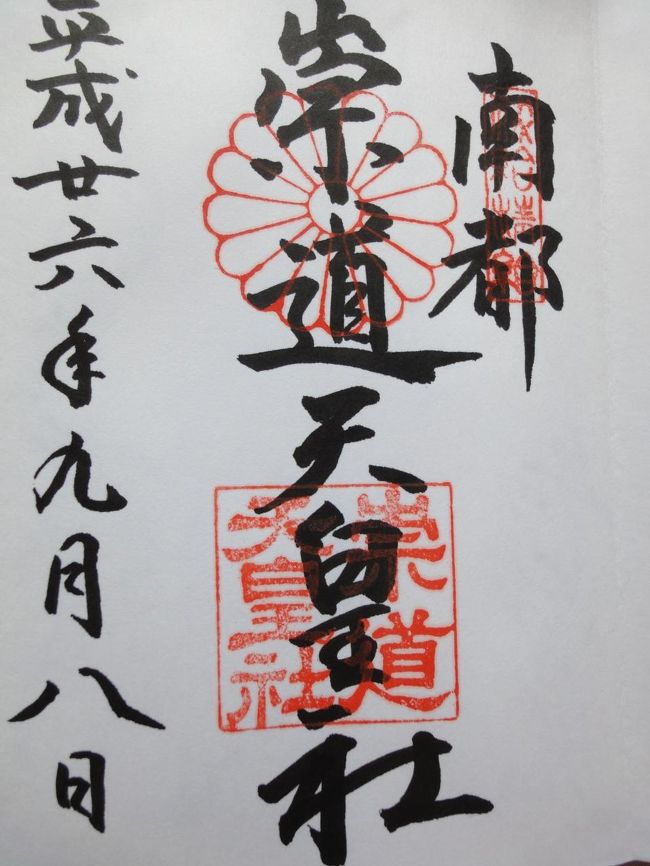 南都
崇道天皇社
崇道
天皇社
平成廿六年九月八日